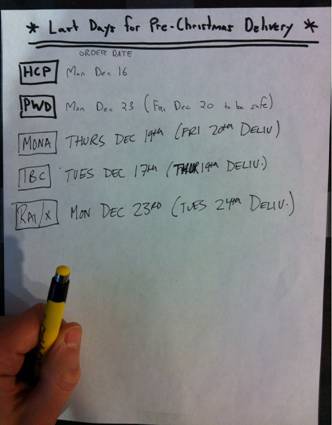 * Last Days for Pre-Christmas Delivery *
ORDER DATE
HCP Mon Dec 16
PWD Mon Dec 23 (Fri Dec 20 to be safe)
MONA THURS DEC 19th (FRI 20th DELIV.)
IBC TUES DEC 17th (THUR 19th DELIV.)
MON DEC 23RD (TUES 24th DELIV.)